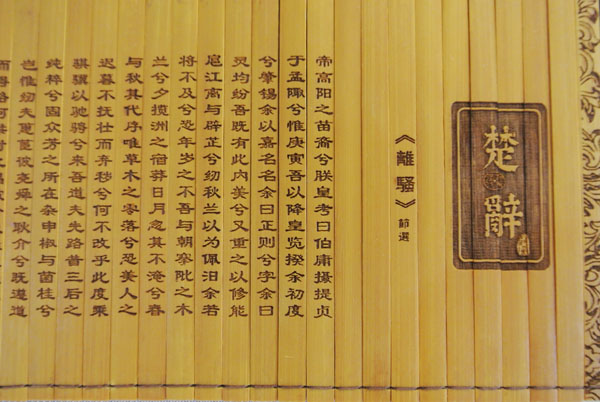 楚辭
《離騷》節選
帝高阳之苗裔兮朕皇考曰伯庸摄提贞
于孟陬兮惟庚寅吾以降皇览揆余初度
兮肇锡余以嘉名名余曰正则兮字余曰
灵均纷吾既有此内美兮又重之以修能
扈江离与辟芷兮纫秋兰以为佩汩余若
将不及兮恐年岁之不吾与朝搴阰之木
兰兮夕揽洲之宿莽日月忽其不淹兮春
与秋其代序唯草木之零落兮恐美人之
迟暮不抚壮而弃秽兮何不改乎此度乘
骐骥以驰骋兮来吾道夫先路昔三后之
纯粹兮固众芳之所在杂申椒与菌桂兮
岂惟纫夫蕙茝彼尧舜之耿介兮既遵道